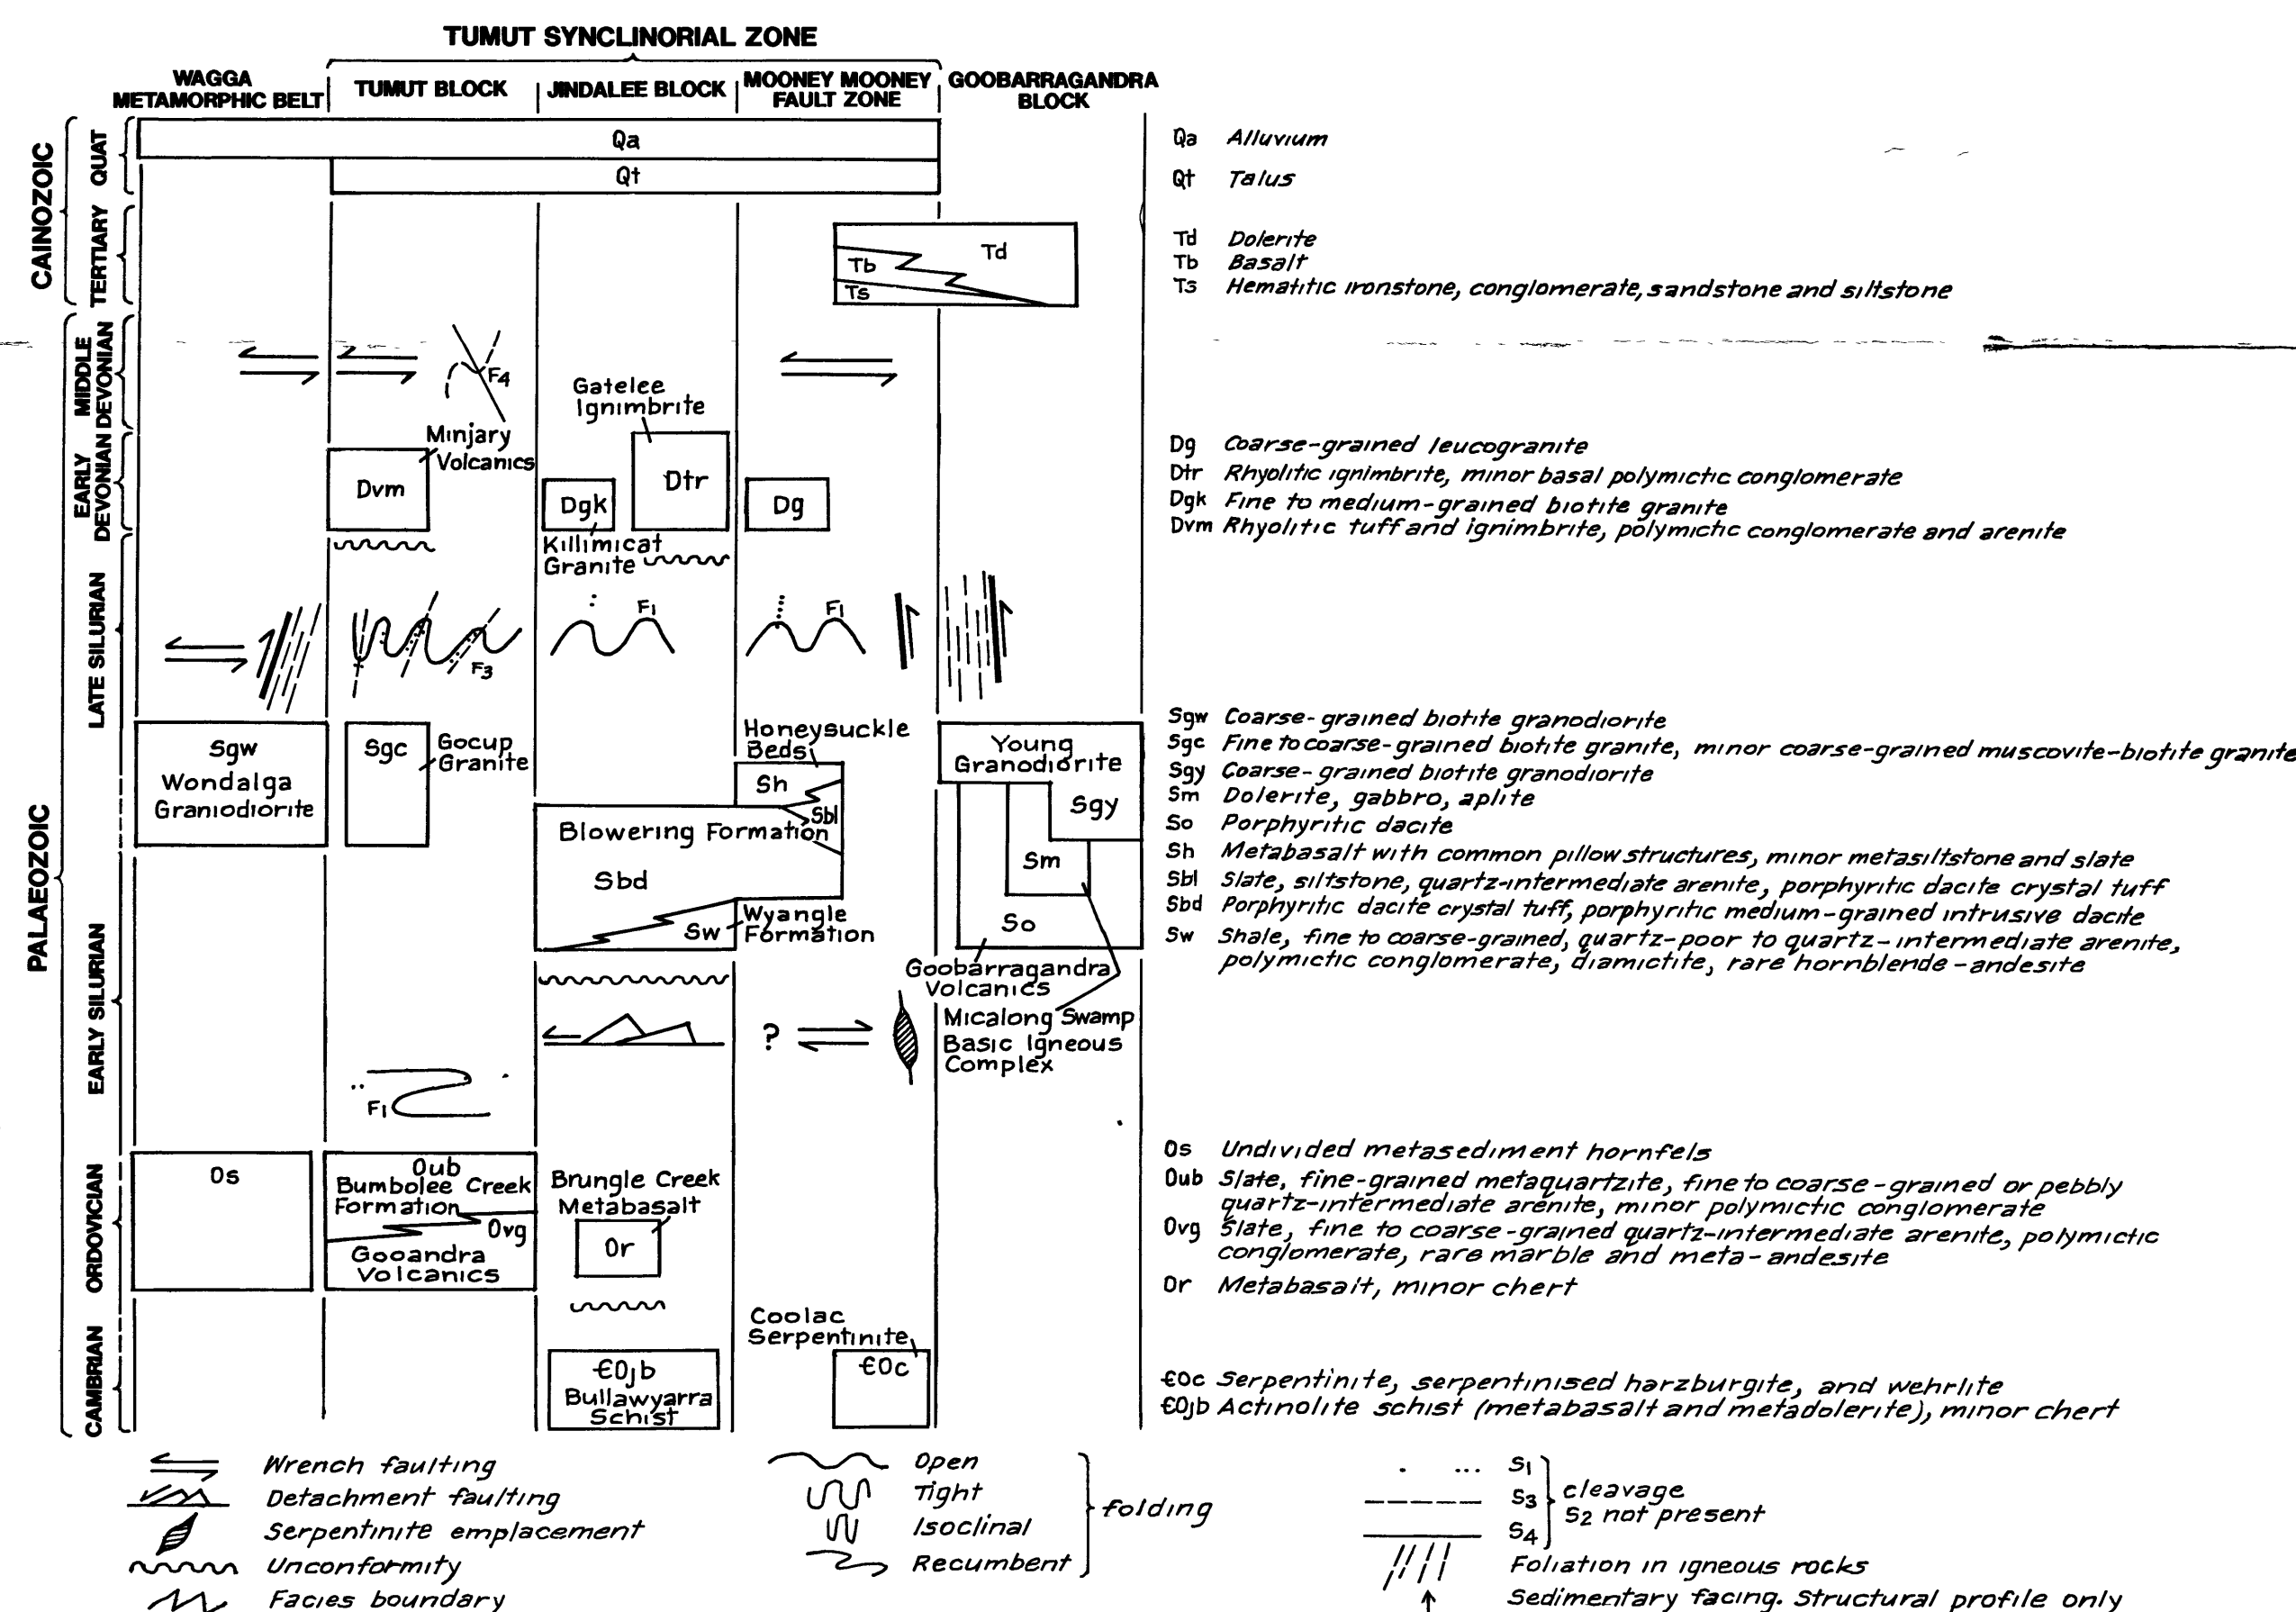 TUMUT SYNCLINORIAL ZONE
WAGGA
METAMORPHIC BELT
TUMUT BLOCK
JINDALEE BLOCK
MOONEY MOONEY
FAULT ZONE
GOOBARRAGANDRA
BLOCK
CAINOZOIC
QUAT
TERTIARY
PALAEOZOIC
MIDDLE
DEVONIAN
EARLY
DEVONIAN
LATE SILURIAN
EARLY SILURIAN
ORDOVICIAN
CAMBRIAN
Qa
Qt
Td
Tb
Ts
F4
Gatelee
Ignimbrite
Minjary
Volcanics
Dvm
Dgk
Dtr
Dg
Killimicat
Granite
F3
F1
F1
Sgw
Wondalga
Graniodiorite
Sgc
Gocup
Granite
Honeysuckle
Beds
Sh
Sbl
Blowering Formation
Sbd
Sw
Wyangle
Formation
Young
Granodiorite
Sgy
Sm
So
Goobarragandra
Volcanics
Micalong Swamp
Basic Igneous
Complex
?
F1
Os
Oub
Bumbolee Creek
Formation
Ovg
Gooandra
Volcanics
Brungle Creek
Metabasalt
Or
Coolac
Serpentinite
€Ojb
Bullawyarra
Schist
€Oc
Qa Alluvium
Qt Talus
Td Dolerite
Tb Basalt
Ts Hematitic ironstone, conglomerate, sandstone and siltstone
Dg Coarse-grained leucogranite
Dtr Rhyolitic ignimbrite, minor basal polymictic conglomerate
Dgk Fine to medium-grained biotite granite
Dvm Rhyolitic tuff and ignimbrite, polymictic conglomerate and arenite
Sgw Coarse-grained biotite granodiorite
Sgc Fine to coarse-grained biotite granite, minor coarse-grained muscovite-biotite granite
Sgy Coarse-grained biotite granodiorite
Sm Dolerite, gabbro, aplite
So Porphyritic dacite
Sh Metabasalt with common pillow structures, minor metasiltstone and slate
Sbl Slate, siltstone, quartz-intermediate arenite, porphyritic dacite crystal tuff
Sbd Porphyritic dacite crystal tuff, porphyritic medium-grained intrusive dacite
Sw Shale, fine to coarse-grained, quartz-poor to quartz-intermediate arenite,
polymictic conglomerate, diamictite, rare hornblende-andesite
Os Undivided metasediment hornfels
Oub Slate, fine-grained metaquartzite, fine to coarse-grained or pebbly
quartz-intermediate arenite, minor polymictic conglomerate
Ovg Slate, fine to coarse-grained quartz-intermediate arenite, polymictic
conglomerate, rare marble and meta-andesite
Or Metabasalt, minor chert
€Oc Serpentinite, serpentinised harzburgite, and wehrlite
€Ojb Actinolite schist (metabasalt and metadolerite), minor chert
Wrench faulting
Detachment faulting
Serpentinite emplacement
Unconformity
Facies boundary
Open
Tight
Isoclinal
Recumbent
folding
S1
S3
S4
cleavage
S2 not present
Foliation in igneous rocks
Sedimentary facing. Structural profile only